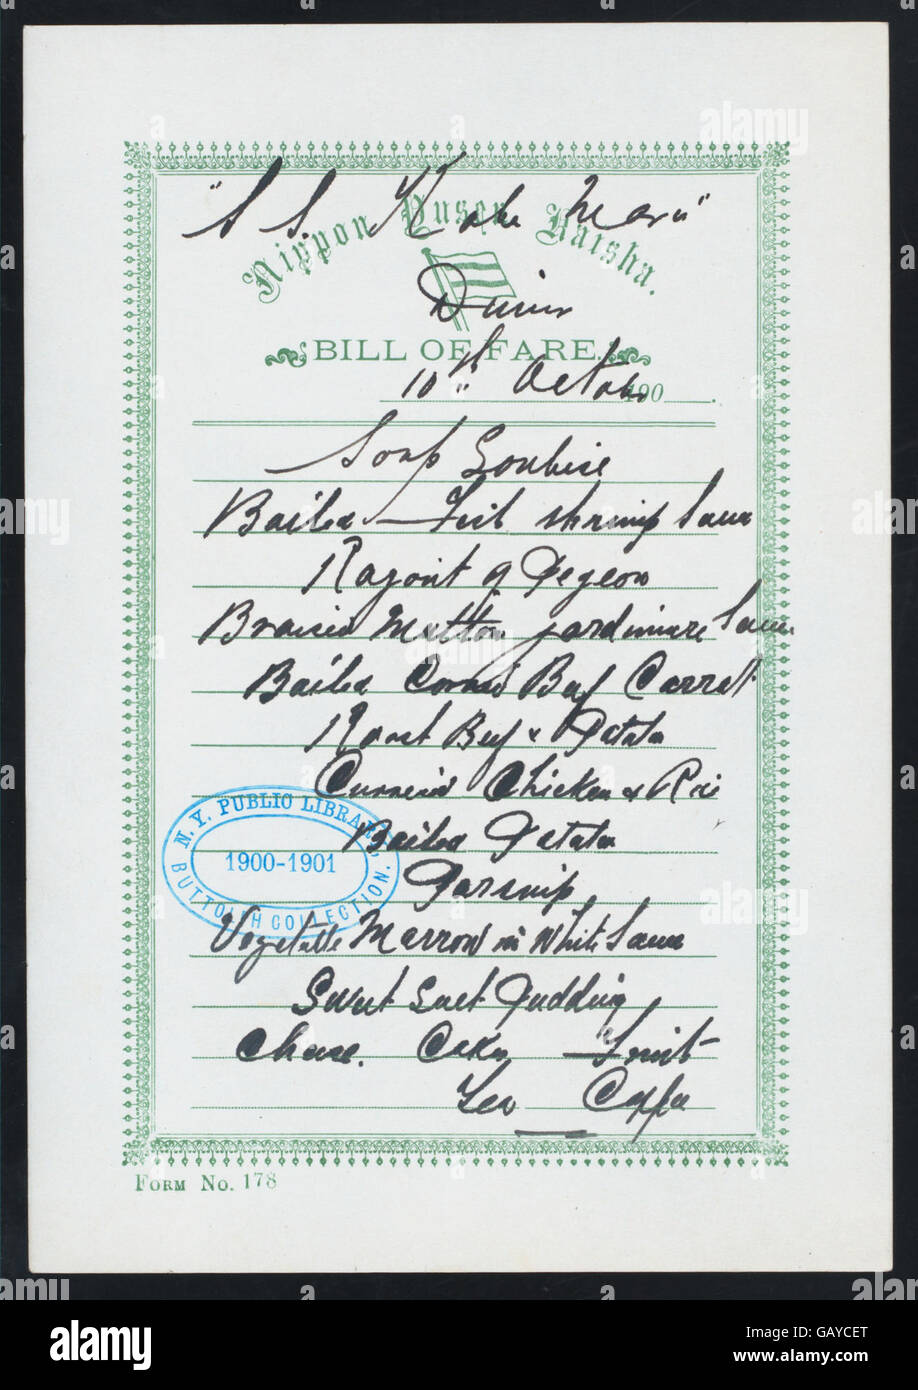 "S S. Kobe Maru"
Nippon Yusen Kaisha.
Dinner
BILL OF FARE.
10th October 190
Soup Soubise
Boiled Fish Shrimp Sauce
Ragout of Pegeon
Braised Mutton jardiniere Sauce
Boiled Corned Beef Carrot
Roast Beef & Potato
Curried Chicken & Rice
Boiled Potato
Parsnip
Vegetable Marrow in White Sauce
Sweet Suet Pudding
Cheese. Cakes Fruit
Tea Coffee
N. Y. PUBLIC LIBRARY,
1900-1901
BUTTOLPH COLLECTION.
FORM NO. 178
alamy
alamy
Image ID: GAYCET
www.alamy.com